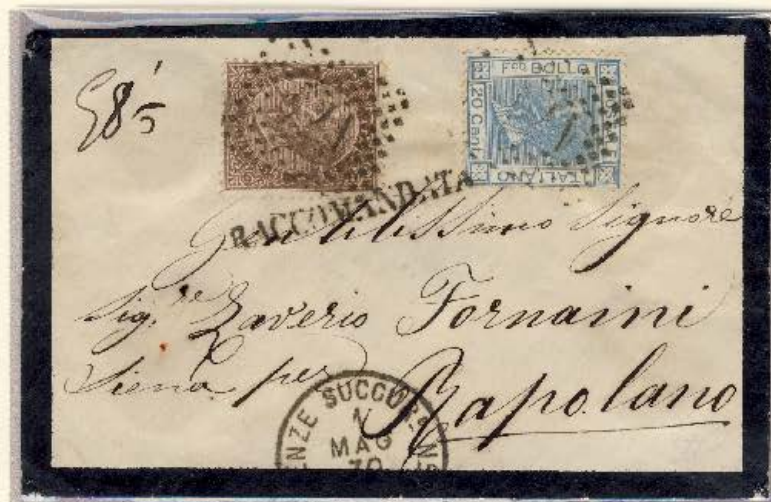 985
Fco BOLLO
POSTALE
20 Cent.
ITALIANO
RACCOMANDATA
Gentilissimo Signore
Sig.re Zaverio Fornaini
Siena per Rapolano
ENZE SUCCURS
MAG
70